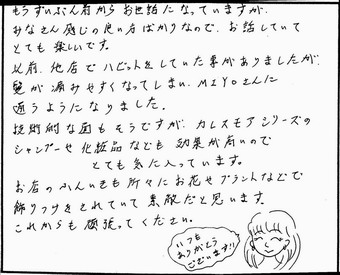 もうずいぶん前からお世話になっていますが、
みなさん感じの良い方ばかりなので、お話ししていて
とても楽しいです。
以前、他店でハビットをしていた事がありましたが、
髪が痛みやすくなってしまい、MIYOさんに
通うようになりました。
技術的な面もそうですが、カレスモアシリーズの
シャンプーや化粧品なども効果が高いので
とても気に入っています。
お店のふんいきも所々にお花やプラントなどで
飾りつけをされていて素敵だと思います。
これからも頑張ってください。
いつも
ありがとう
ございます!!